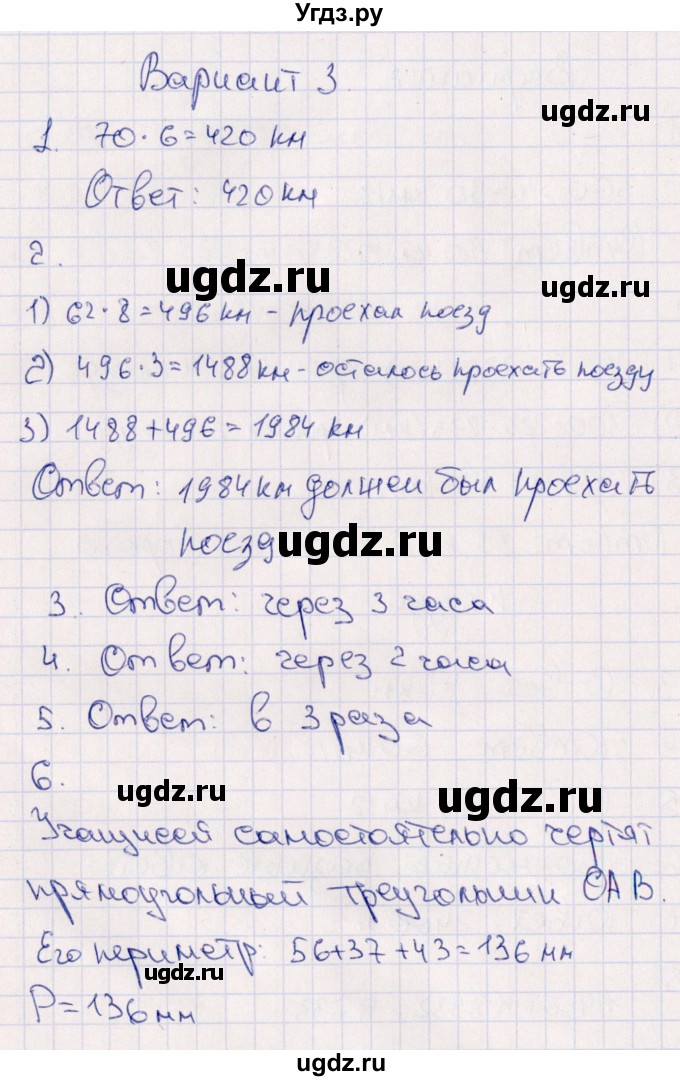 Угдз.ру
Вариант 3.
ugdz.ru
1. 70·6=420 км
Ответ: 420 км
2.
ugdz.ru
1) 62·8=496 км - проехал поезд
2) 496·3=1488 км - осталось проехать поезду
3) 1488+496=1984 км
Ответ: 1984 км должен был проехать
поезд
ugdz.ru
3. Ответ: через 3 часа
4. Ответ: через 2 часа
5. Ответ: в 3 раза
6.
ugdz.ru
ugdz.ru
Учащиеся самостоятельно чертят
прямоугольный треугольник ОАВ.
Его периметр: 56+37+43=136 мм
ugdz.ru
ugdz.ru
Р=136 мм
ugdz.ru